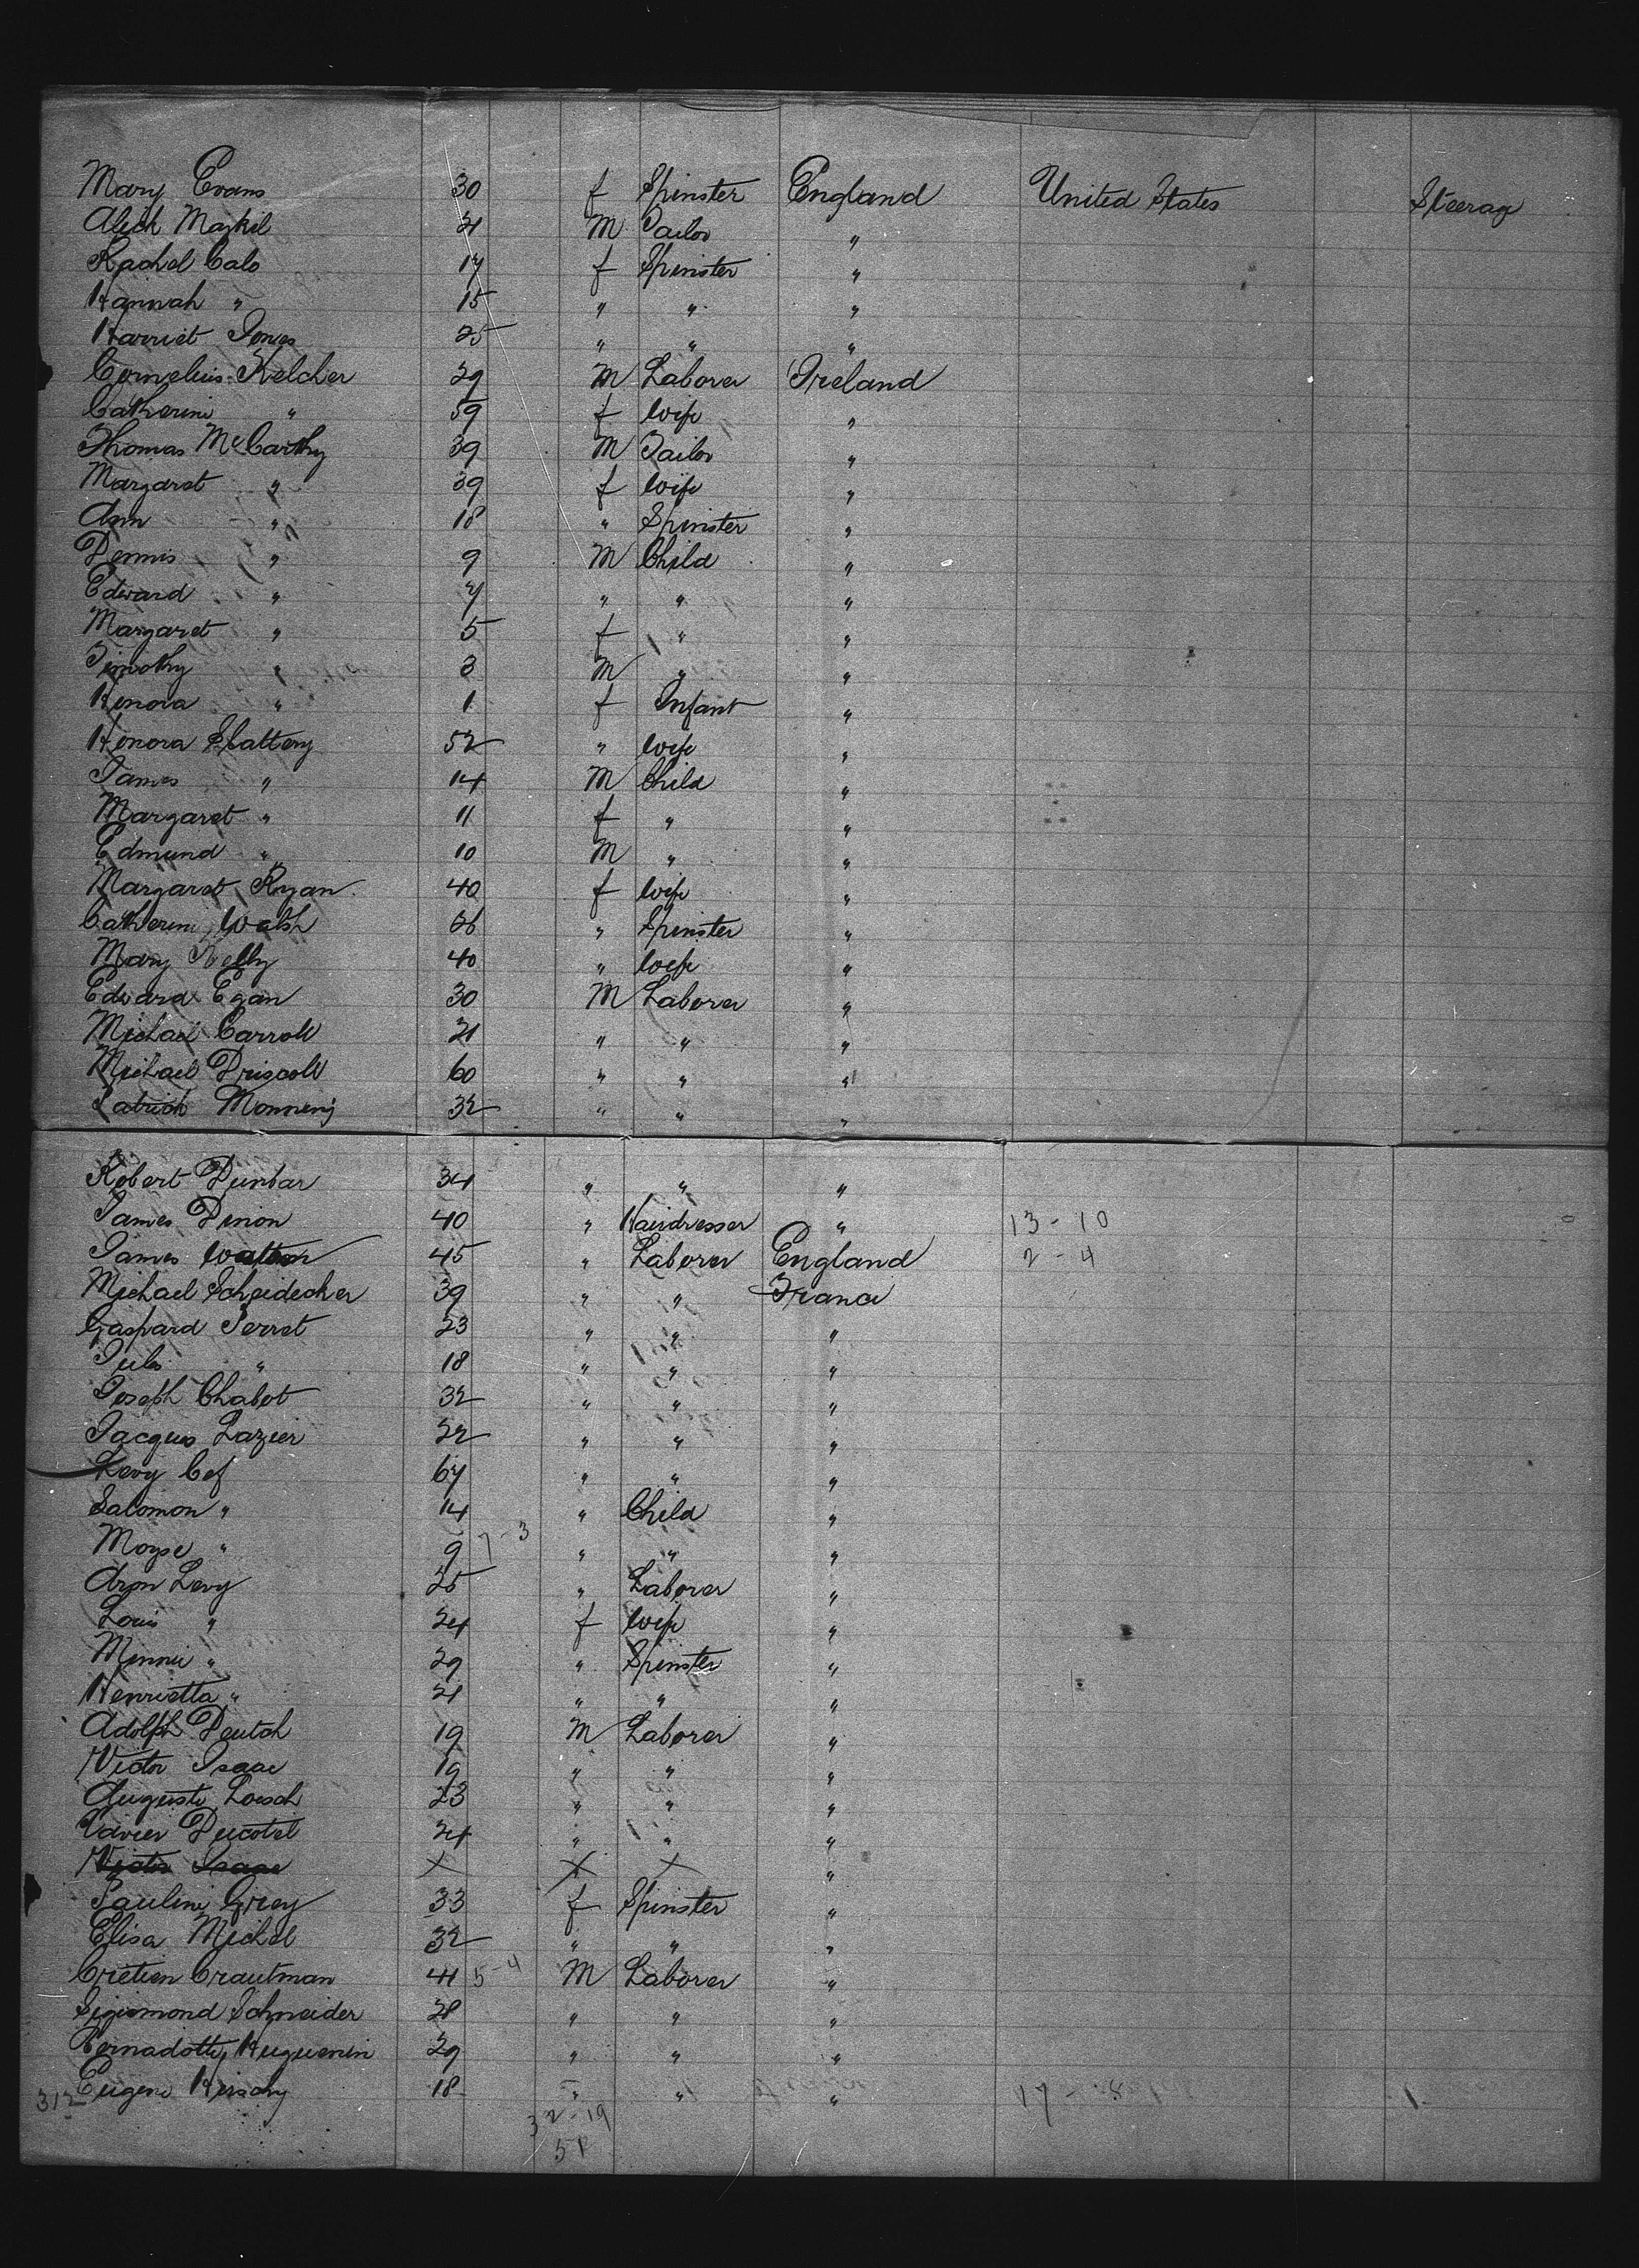 Mary Evans 30 f Spinster England United States Steerage
Alick Maykil 21 M Tailor "
Rachel Calo 17 f Spinster "
Hannah " 15 " " "
Harriet Jones 25 " " "
Cornelius Kelcher 29 M Laborer Ireland
Catherine " 59 f Wife "
Thomas McCarthy 39 M Tailor "
Margaret " 39 f Wife "
Ann " 18 " Spinster "
Dennis " 9 M Child "
Edward " 7 " " "
Margaret " 5 f " "
Timothy " 3 M " "
Honora " 1 f Infant "
Honora Slattery 52 " Wife "
James " 14 M Child "
Margaret " 11 f " "
Edmund " 10 M " "
Margaret Ryan 40 f Wife "
Catherine Walsh 26 " Spinster "
Mary Kelly 40 " Wife "
Edward Egan 30 M Laborer "
Michael Carroll 21 " " "
Michael Driscoll 60 " " "
Patrick 32 " " "
Robert Dunbar 34 " " "
James Dinon 40 " Hairdresser " 13-10
James Walton 45 " Laborer England 2-4
Michael Scheidecker 39 " " France
Gaspard Perret 23 " " "
Jules " 18 " " "
Joseph Chabot 32 " " "
Jacques Lazier 22 " " "
Levy Cef 67 " " "
Salomon " 14 " Child "
Moyse " 9 7-3 " " "
Aron Levy 25 " Laborer "
Louis " 24 f Wife "
Minnie " 29 " Spinster "
Henrietta " 21 " " "
Adolph Deutch 19 M Laborer "
Victor Isaac 19 " " "
Auguste Loesch 23 " " "
Xavier Ducotel 24 " " "
Victor Isaac X X X "
Pauline Grey 33 f Spinster "
Elisa Michel 32 " " "
Cretien Crautman 41 5-4 M Laborer "
Sigismond Schneider 28 " " "
Bernadotte Huguenin 29 " " "
312 Eugene Hirschy 18 " " " 17-8 1
32-19
51